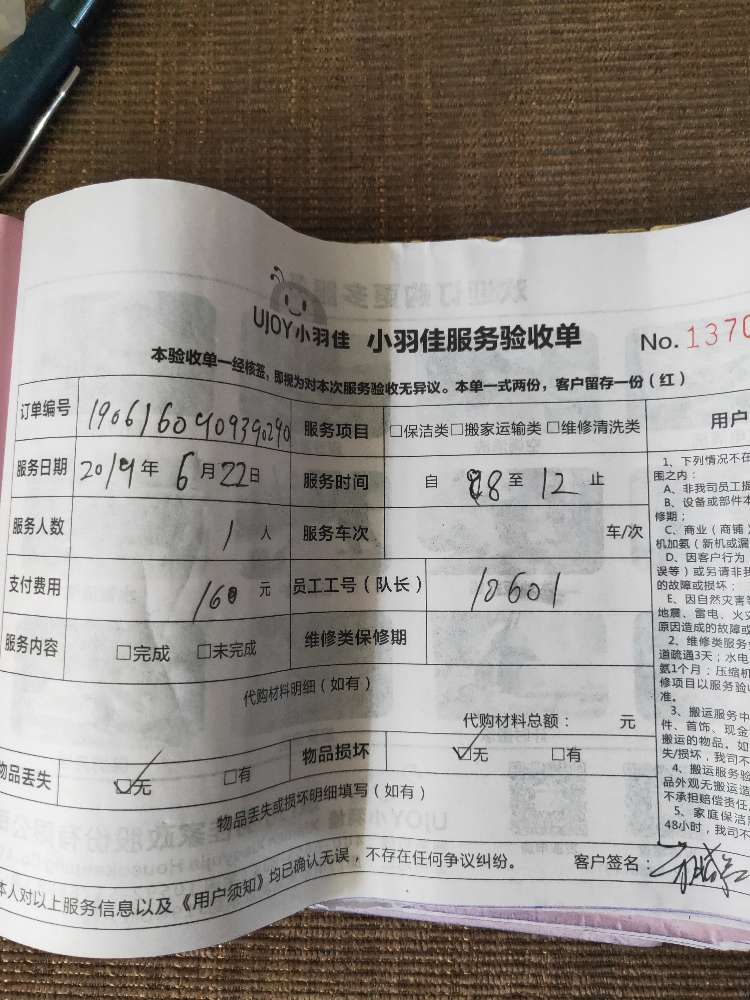 UJOY小羽佳 小羽佳服务验收单 No. 1370
本验收单一经核签，即视为对本次服务验收无异议。本单一式两份，客户留存一份（红）
订单编号 1906160909390290 服务项目 □保洁类□搬家运输类□维修清洗类
服务日期 2019年6月22日 服务时间 自 8至12止
服务人数 1人 服务车次 车/次
支付费用 160元 员工工号（队长） 10601
服务内容 □完成 □未完成 维修类保修期
代购材料明细（如有）
代购材料总额： 元
物品丢失 ☑无 □有 物品损坏 ☑无 □有
物品丢失或损坏明细填写（如有）
本人对以上服务信息以及《用户须知》均已确认无误，不存在任何争议纠纷。 客户签名：
用户
1、下列情况不在
围之内：
A、非我司员工提
B、设备或部件本
修期；
C、商业（商铺）
机加氨（新机或漏
D、因客户行为
误等）或另请非我
的故障或损坏；
E、因自然灾害等
地震、雷电、火灾
原因造成的故障或
2、维修类服务
道疏通3天；水电
氨1个月；压缩机
修项目以服务验收
准。
3、搬运服务中
件、首饰、现金
搬运的物品。如
失/损坏，我司不
4、搬运服务验
品外观无搬运造
不承担赔偿责任。
5、家庭保洁服
48小时，我司不